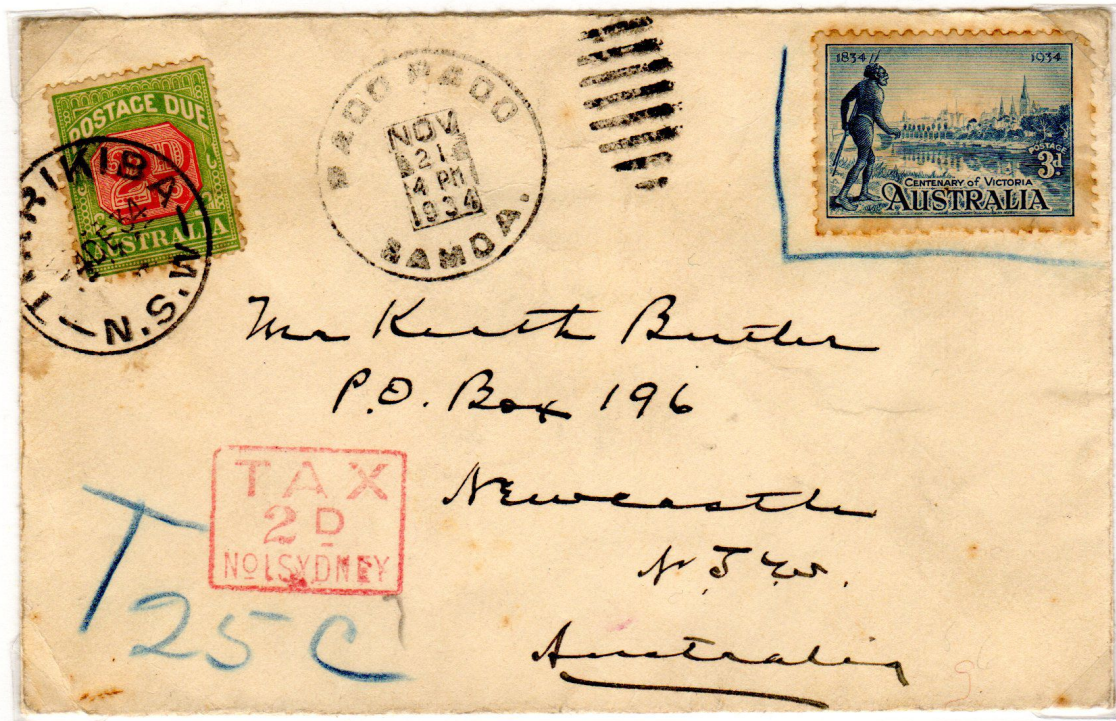 POSTAGE DUE
2D
AUSTRALIA
TARRIKIBA
DE 34
N.S.W.
PAGO PAGO
NOV
21
4 PM
1934
SAMOA.
1834 1934
POSTAGE
3d.
CENTENARY of VICTORIA
AUSTRALIA
Mr Keith Butler
P.O. Box 196
Newcastle
N S W.
Australia
TAX
2D
No 1 SYDNEY
T
25 C